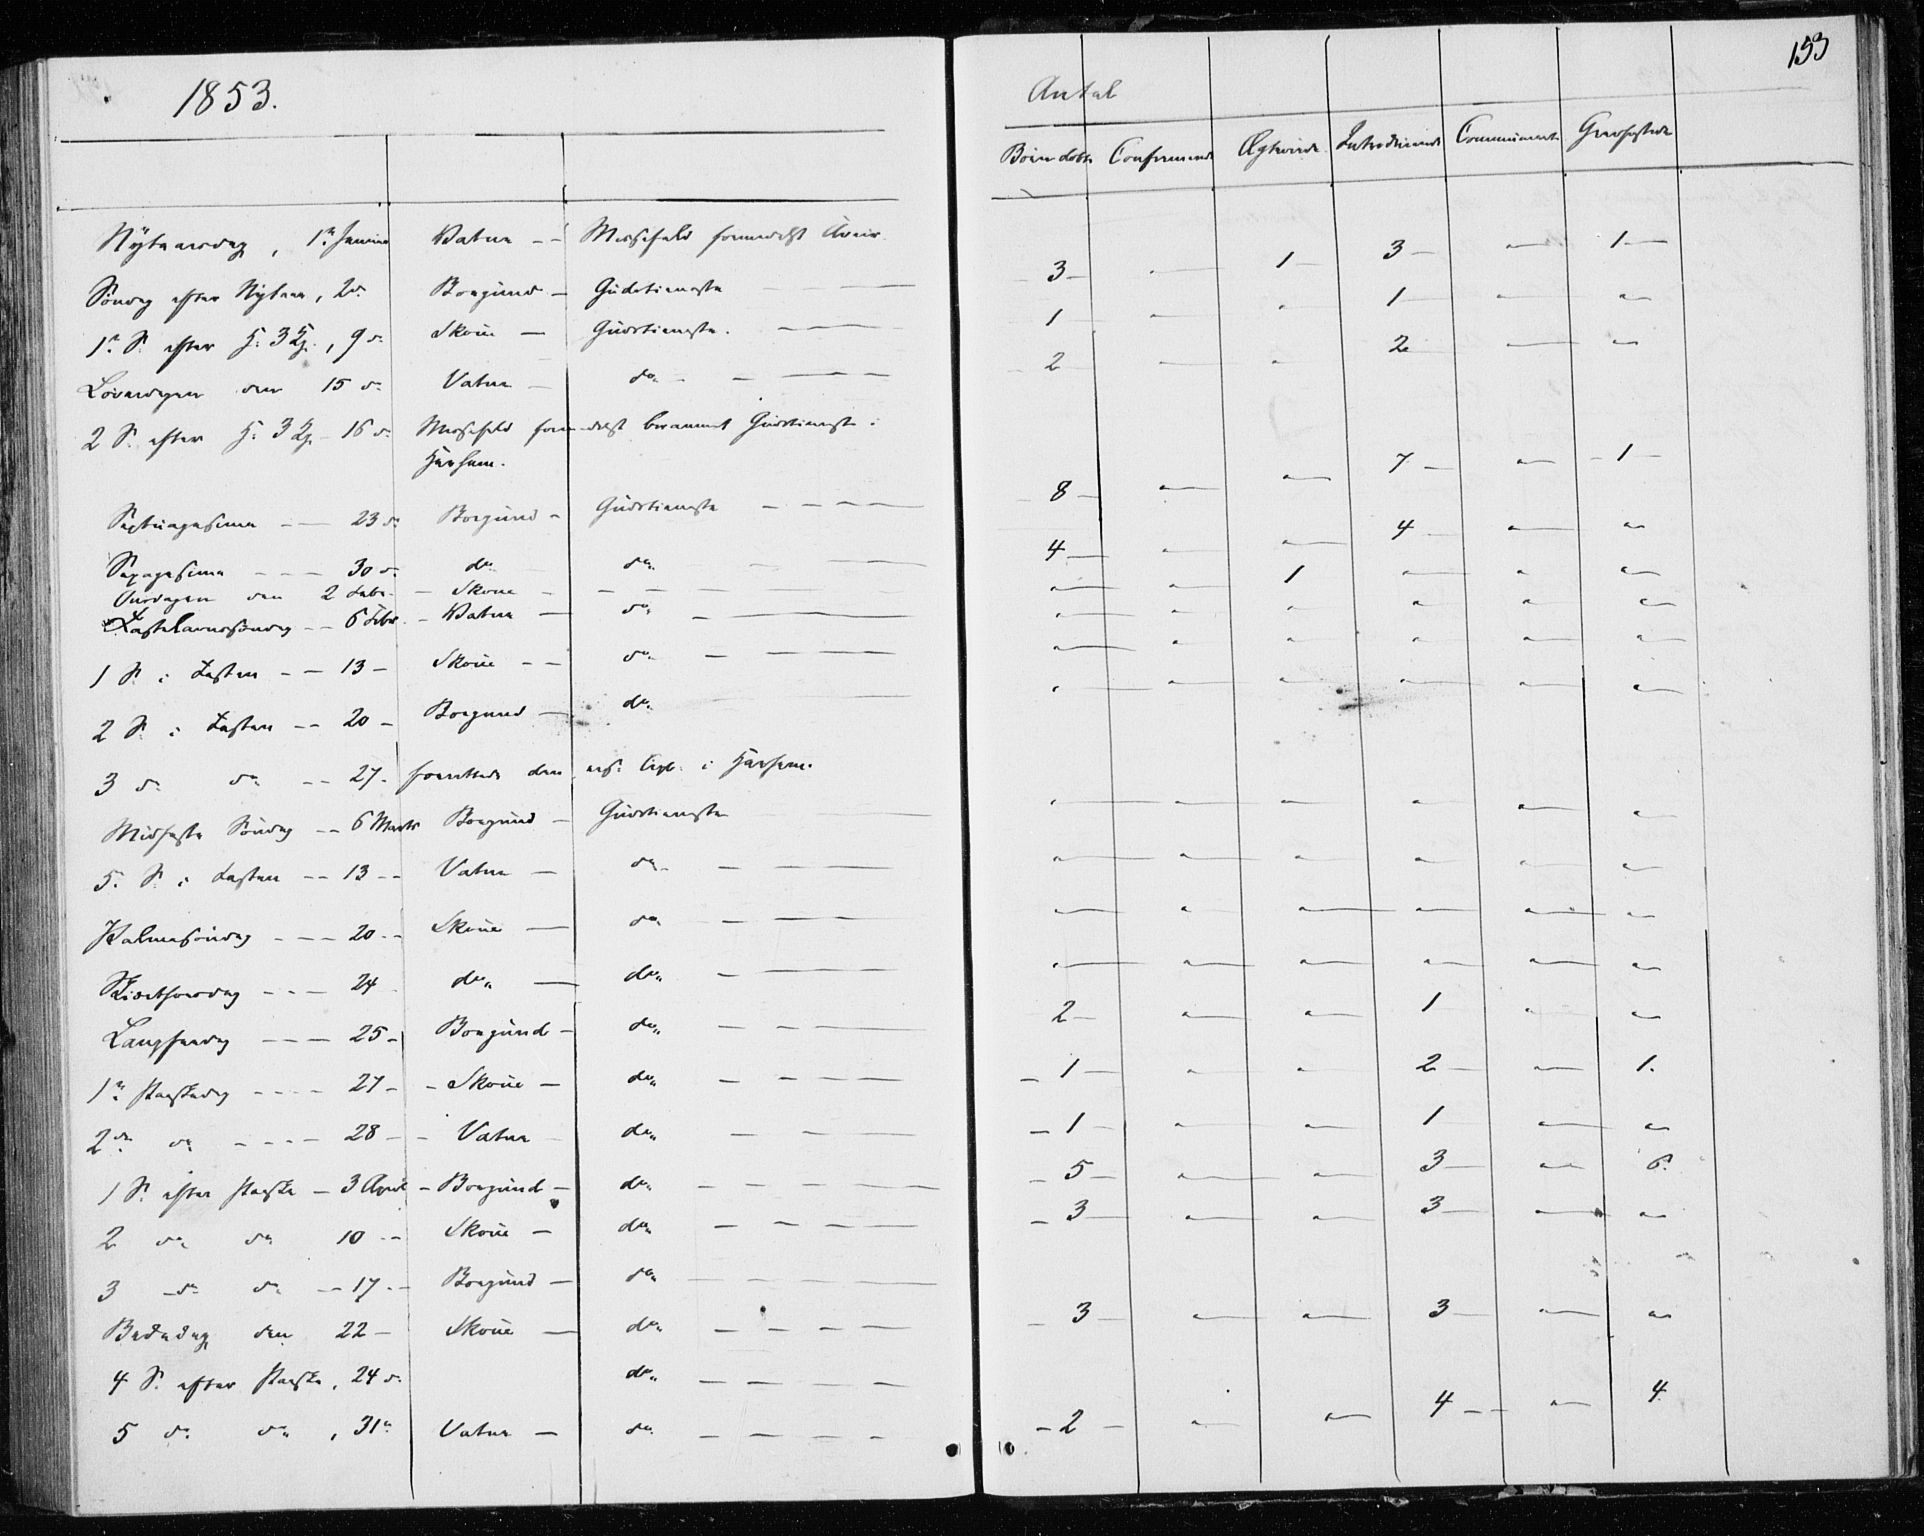 1853.
Nytaarsdag, 1ste Januar Vatne -- Messefald formedelst Uveir
Søndag efter Nytaar, 2 d. Borgund - Gudstieneste
1ste S. efter H. 3 Kg., 9 d. Skoue - Gudstieneste.
Løverdagen den 15 d. Vatne - do
2 S. efter H. 3 Kg. - 16 d. Messefald formedelst berammet Gudstieneste i
Harham.
Septuagesima --- 23 d. Borgund - Gudstieneste
Sexagesima --- 30 d. do do
Onsdagen den 2 Febr. - Skoue
Fastelavnssøndag -- 6 Febr. - Vatne - do
1 S. i Fasten -- 13 - Skoue -- do
2 S. i Fasten -- 20 - Borgund - do
3 d. do -- 27. forrettede den i Harham.
Midfaste Søndag -- 6 Marts Borgund - Gudstieneste
5. S. i Fasten -- 13 -- Vatne - do
Palmesøndag --- 20 -- Skoue - do
Skiærthorsdag --- 24 do - do
Langfredag --- 25 - Borgund - do
1ste Paaskedag ---- 27 - - Skoue - do
2den do ---- 28 - - Vatne do
1 S. efter Paaske - 3 April - Borgund - do
2 do do 10 -- Skoue - do
3 do do -- 17 -- Borgund - do
Bededag den 22 - Skoue - do
4 S. efter Paaske, 24 d. do
5 d. do, 31te Vatne - do
153
Antal
Børn døbte Confirmerede Ægteviede Introducerede Communicant Gravfæstede
3 - 1 3 - 1
1 - - 1 - -
2 - - 2 - -
8 - - 7 - 1
4 - - 4 - -
- - 1 - - -
- - - - - -
- - - - - -
- - - - - -
- - - - - -
- - - - - -
- - - - - -
- - - - - -
2 - - 1 - -
1 - - 2 - 1.
1 - - 1 - -
5 - - 3 - 6.
3 - - 3 - -
3 - - 3 - -
2 - - 4 - 4